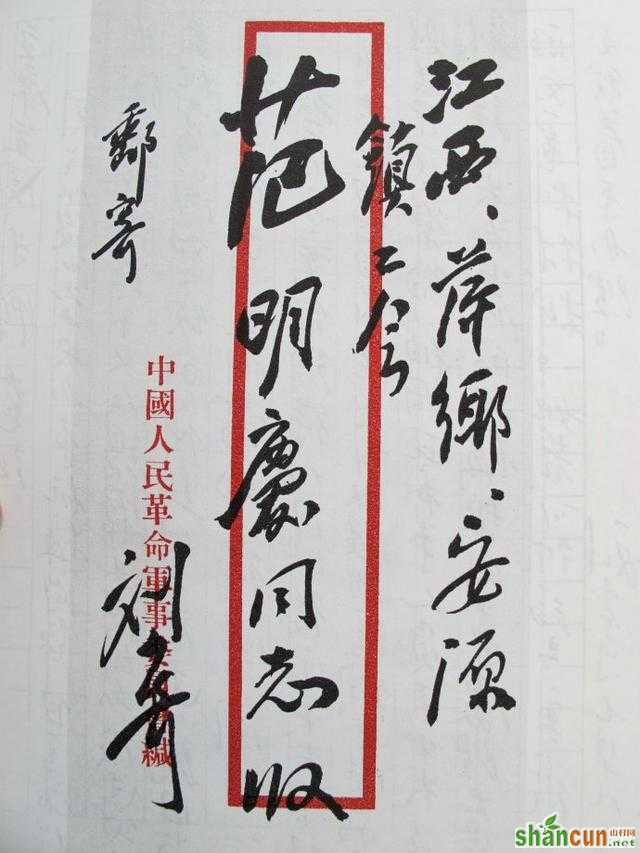 江西、萍鄉、安源
鎮工会
范明慶同志收
中國人民革命軍事委員會緘
刘寄
郵寄
shancun
山村网
.net